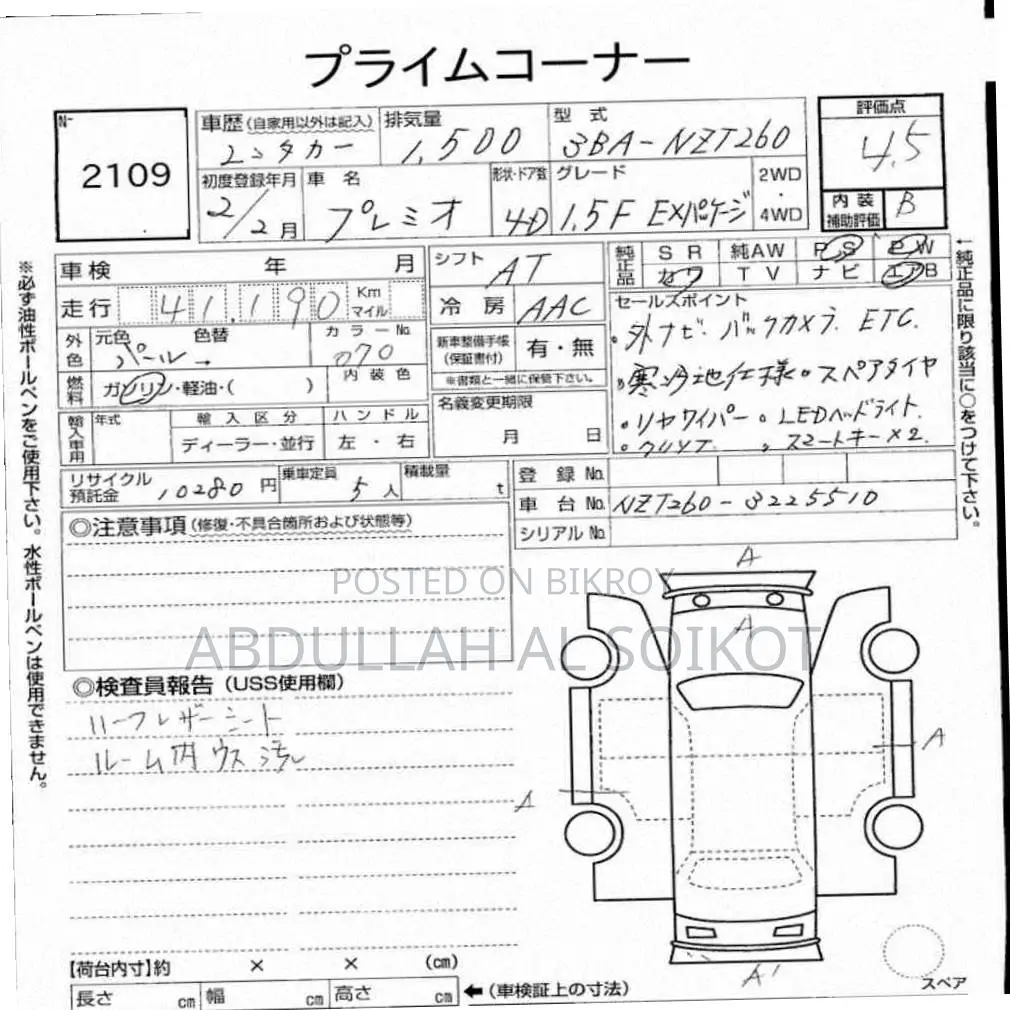 プライムコーナー
N-
2109
車歴 (自家用以外は記入)
レンタカー
排気量
1,500
型式
3BA-NZT260
評価点
4.5
初度登録年月
2/2月
車名
プレミオ
形状・ドア数
4D
グレード
1.5F EXパッケージ
2WD
・
4WD
内装
補助評価
B
車検 年 月
シフト
AT
純正品
SR 純AW PS PW
カワ TV ナビ エアB
走行 41,190 Km
マイル
冷房 AAC
セールスポイント
・外ナビ・バックカメラ ETC.
・寒冷地仕様・スペアタイヤ
・リヤワイパー・LEDヘッドライト
・クリソナ ・スマートキー×2.
外色
元色 色替
パール→
カラーNo.
070
新車整備手帳
(保証書付)
有・無
※書類と一緒に保管下さい。
燃料
ガソリン・軽油・( )
内装色
名義変更期限
月 日
輸入車用
年式
輸入区分
ディーラー・並行
ハンドル
左・右
リサイクル
預託金
10280 円
乗車定員
5人
積載量
t
登録No.
車台No. NZT260-3225510
シリアルNo.
◎注意事項 (修復・不具合箇所および状態等)
◎検査員報告 (USS使用欄)
ハーフレザーシート
ルーム内ウス汚レ
A
A
A
A
A1
スペア
【荷台内寸】約 × × (cm)
長さ cm 幅 cm 高さ cm ←(車検証上の寸法)
※必ず油性ボールペンをご使用下さい。水性ボールペンは使用できません。
←純正品に限り該当に○をつけて下さい。
POSTED ON BIKROY
ABDULLAH AL SOIKOT